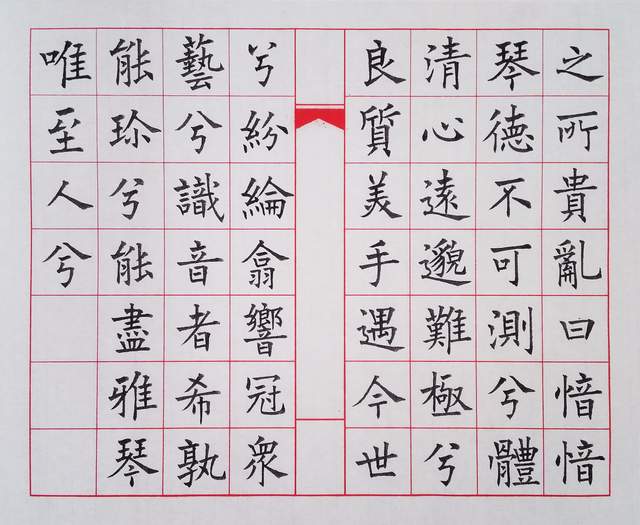 之所貴亂曰愔愔
琴德不可測兮體
清心遠邈難極兮
良質美手遇今世
兮紛綸翕響冠衆
藝兮識音者希孰
能珍兮能盡雅琴
唯至人兮